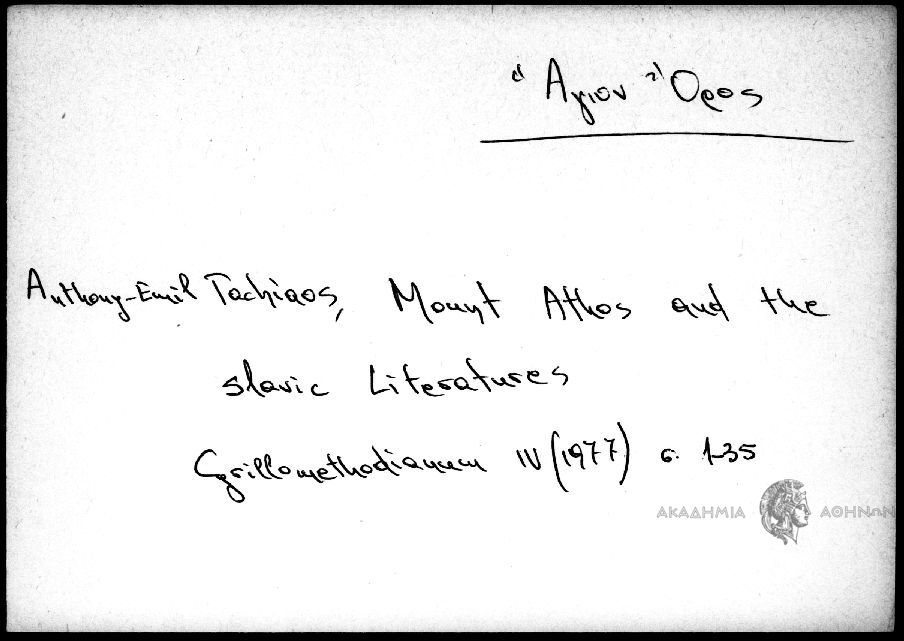 Ἅγιον Ὄρος
Anthony-Emil Tachiaos, Mount Athos and the
slavic Literatures
Cyrillomethodianum IV (1977) σ. 1-35
ΑΚΑΔΗΜΙΑ ΑΘΗΝΩΝ